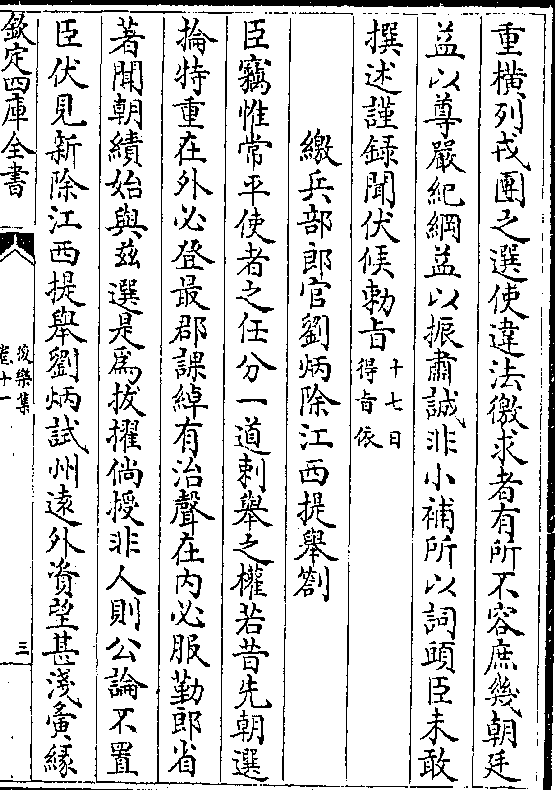 重横列戎團之選使違法徼求者有所不容庶幾朝廷
益以尊嚴紀綱益以振肅誠非小補所以詞頭臣未敢
撰述謹録聞伏候勅㫖十七日得㫖依
繳兵部郎官劉炳除江西提舉劄
臣竊惟常平使者之任分一道刺舉之權若昔先朝選
掄特重在外必登最郡課綽有治聲在内必服勤郎省
著聞朝績始與兹選是為拔擢倘授非人則公論不置
臣伏見新除江西提舉劉炳試州逺外資望甚淺夤縁
欽定四庫全書
後樂集
卷十一
三